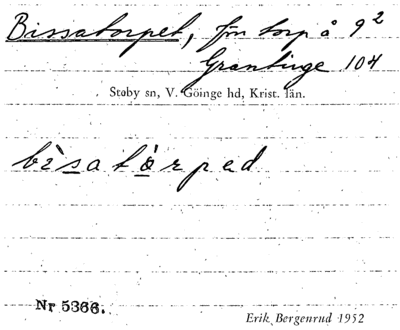 Bissatorpet, fm torp å 9²
Grantinge 104
Stoby sn, V. Göinge hd, Krist. län.
bìsatörped
Nr 5366.
Erik Bergenrud 1952